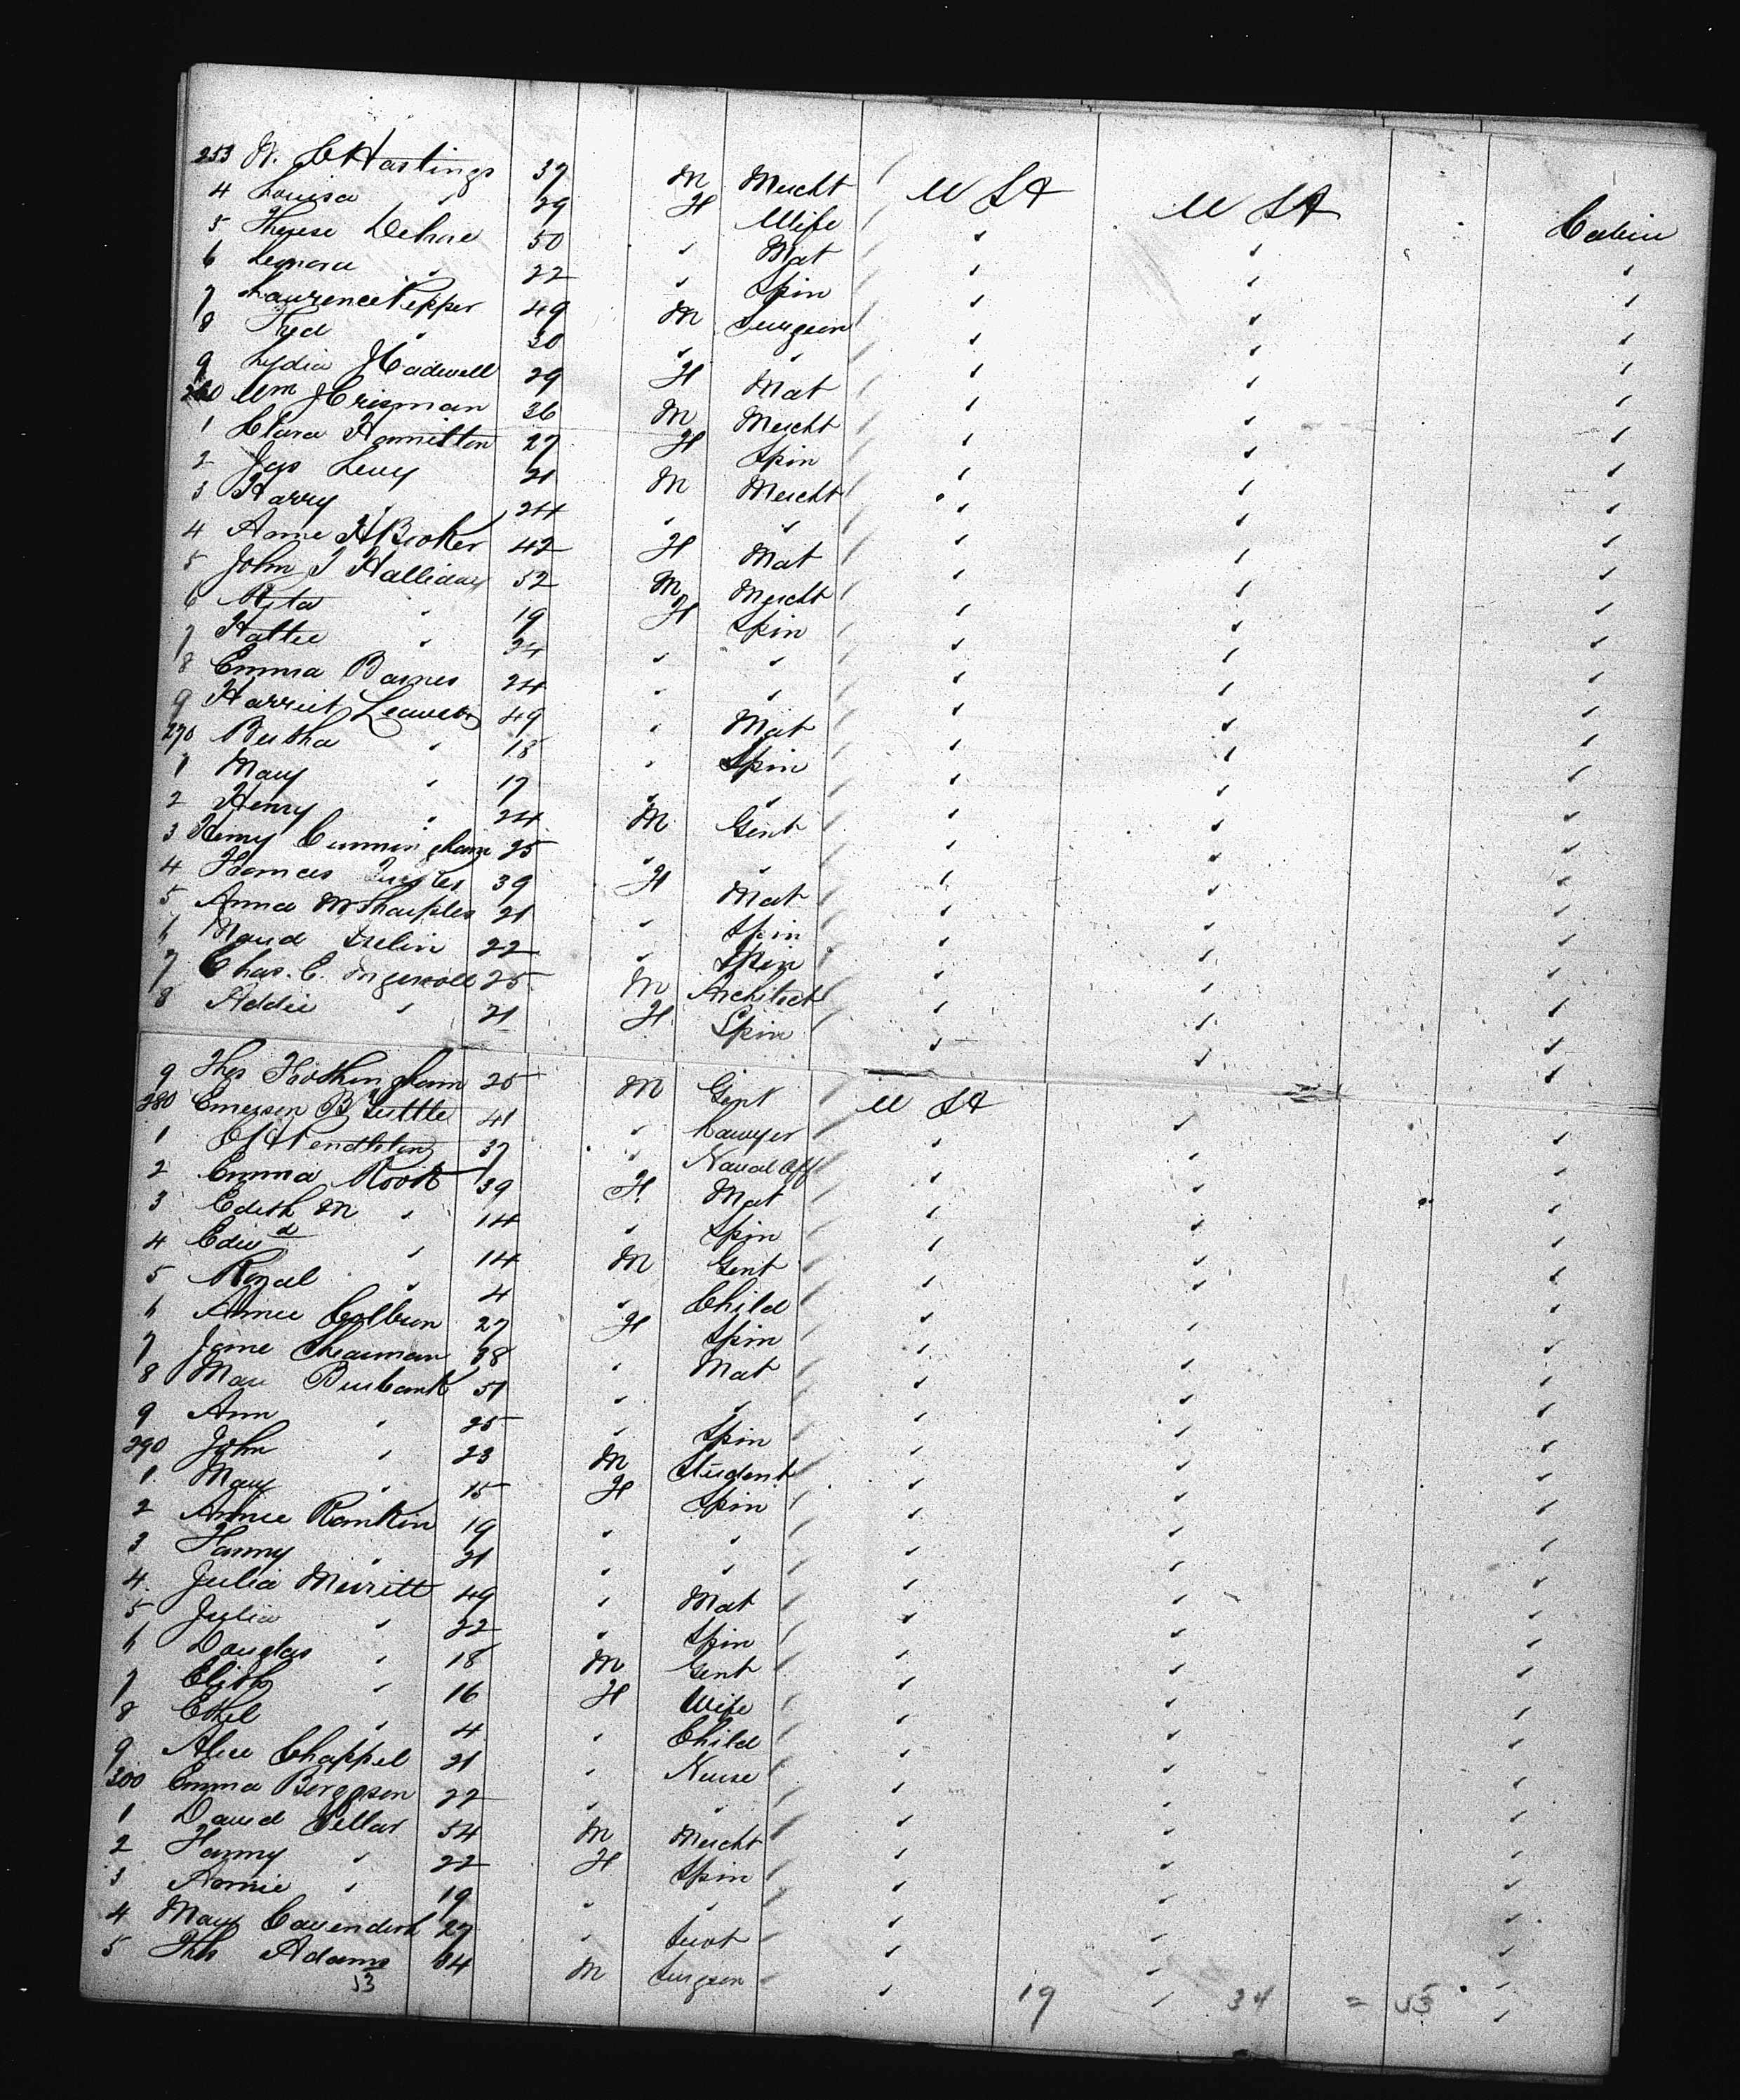 253 W. C Hastings 37 M Mercht U S A U S A Cabin
4 Louisa " 29 F Wife " " "
5 Therese 50 " Mat " " "
6 Leonora " 22 " Spin " " "
7 Laurence Pepper 49 M Surgeon " " "
8 Fred " 30 " " " " "
9 Lydia Hadwell 29 F Mat " " "
260 Wm Crisman 36 M Mercht " " "
1 Clara Hamilton 27 F Spin " " "
2 Jas Levy 21 M Mercht " " "
3 Harry " 24 " " " " "
4 Annie H Broker 42 F Mat " " "
5 John J Halliday 52 M Mercht " " "
6 Rita " 19 F Spin " " "
7 Hattie " 24 " " " " "
8 Emma Barnes 24 " " " " "
9 Harriet 49 " Mat " " "
270 Bertha " 18 " Spin " " "
1 Mary " 17 " " " " "
2 Henry " 24 M Gent " " "
3 Henry Cunningham 25 " " " " "
4 Frances 39 F Mat " " "
5 Anna M Sharples 21 " Spin " " "
6 Maud 22 " Spin " " "
7 Chas. C. Ingersoll 25 M Architect " " "
8 Addie " 21 F Spin " " "
9 Thos Frothingham 25 M Gent U S A " "
280 Emerson B Tuttle 41 " Lawyer " " "
1 Pendleton 37 " Naval Off " " "
2 Emma Rook 39 F Mat " " "
3 Edith M " 14 " Spin " " "
4 Edwd " 14 M Gent " " "
5 Royal " 4 " Child " " "
6 Annie Colburn 27 F Spin " " "
7 Jane Shearman 38 " Mat " " "
8 Mary Burbank 51 " " " " "
9 Ann " 25 " Spin " " "
290 John " 23 M Student " " "
1 Mary " 15 F Spin " " "
2 Annie Rankin 19 " " " " "
3 Fanny " 21 " " " " "
4 Julia Merritt 49 " Mat " " "
5 Julia " 22 " Spin " " "
6 Douglas " 18 M Gent " " "
7 " 16 F Wife " " "
8 Ethel " 4 " Child " " "
9 Alice Chappel 21 " Nurse " " "
300 Emma Berggson 22 " " " " "
1 David Sellar 54 M Mercht " " "
2 Fanny " 22 F Spin " " "
3 Annie " 19 " " " " "
4 Mary Cavendish 27 " Servt " " "
5 Thos Adams 34 M Surgeon " " "
53 19 34 = 53